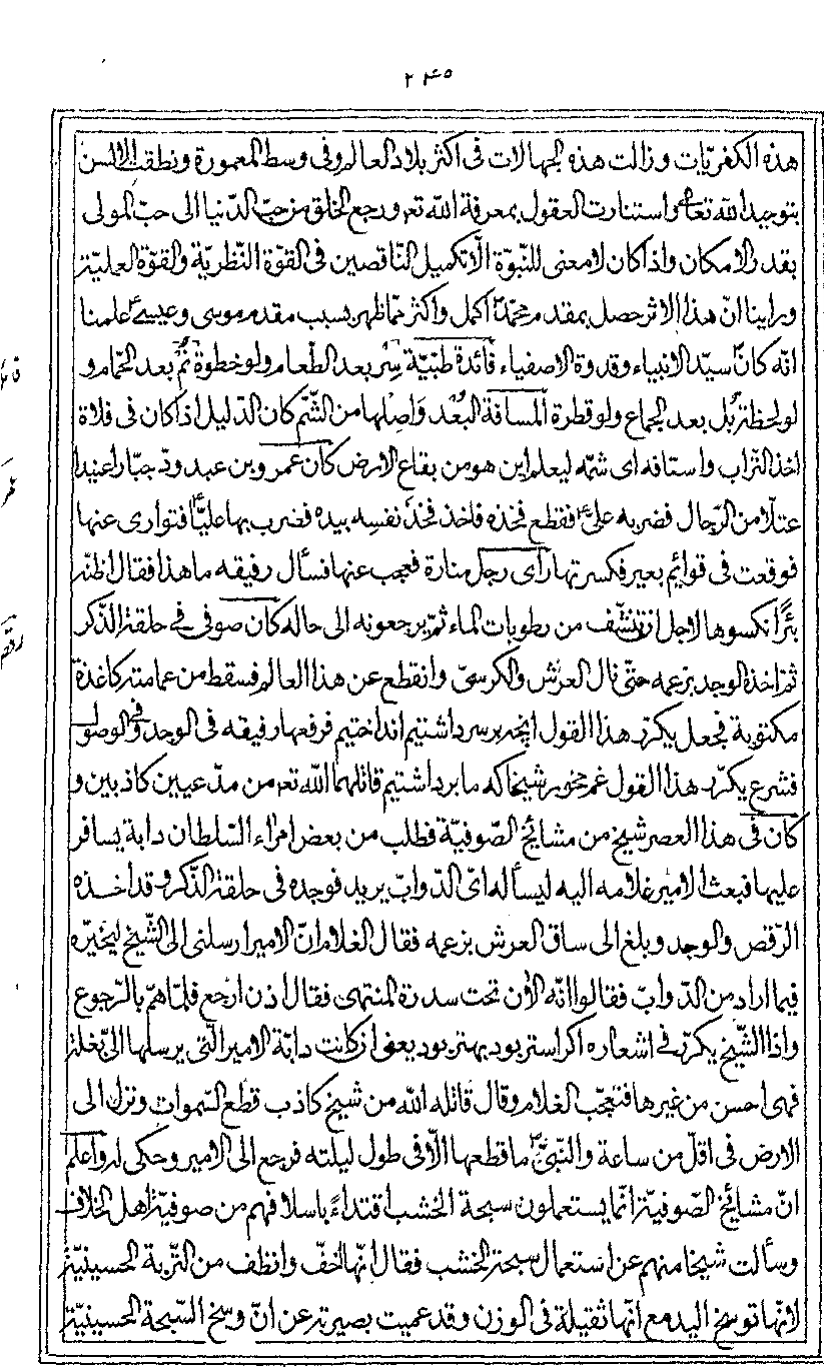 ٢٤٥
هذه الكفريّات وزالت هذه الجهالات فى اكثر بلاد العالم وفى وسط المعمورة ونطقت الالسن
بتوحيد الله تعالى واستنارت العقول بمعرفة الله تع ورجع الخلق من حبّ الدّنيا الى حبّ المولى
بقدر الامكان واذا كان لا معنى للنبوّة الّا تكميل النّاقصين فى القوّة النّظريّة والقوّة العمليّة
وراينا انّ هذا الاثر حصل بمقدم محمّد ص اكمل واكثر ممّا ظهر بسبب مقدم موسى وعيسى ع علمنا
انّه كان سيّد الانبياء وقدوة الاصفياء فائدة طبّيّة سِر بعد الطّعام ولو خطوة نُم بعد الحمّام و
لو لحظة بُل بعد الجماع ولو قطرة المسافة البُعد واصلها من الشّمّ كان الدّليل اذا كان فى فلاة
اخذ التّراب واستافه اى شمّه ليعلم اين هو من بقاع الارض كان عمرو بن عبد ودّ جبّارا عنيدا
عتلّا من الرّجال فضربه علىّ ع فقطع فخذه فاخذ فخذ نفسه بيده فضرب بها عليّا ع فتوارى عنها
فوقعت فى قوائم بعير فكسرتها راى رجل منارة فعجب عنها فسأل رفيقه ما هذا فقال اظنّه
بئرًا نكسوها لاجل ان تنشّف من رطوبات الماء ثمّ يرجعونه الى حاله كان صوفى فى حلقة الذّكر
ثمّ اخذه الوجد بزعمه حتّى نال العرش والكرسىّ وانقطع عن هذا العالم فسقط من عمامته كاغذة
مكتوبة فجعل يكرّر هذا القول اينچه بر سر داشتيم انداختيم فرفعها رفيقه فى الوجد وفى الوصول
فشرع يكرّر هذا القول غم مخور شيخا كه ما برداشتيم قاتلهما الله تع من مدّعيين كاذبين و
كان فى هذا العصر شيخ من مشائخ الصّوفيّة فطلب من بعض امراء السّلطان دابة يسافر
عليها فبعث الامير غلامه اليه ليسأله اىّ الدّوابّ يريد فوجده فى حلقة الذّكر وقد اخذه
الرّقص والوجد وبلغ الى ساق العرش بزعمه فقال الغلام انّ الامير ارسلنى الى الشّيخ ليخيّره
فيما اراد من الدّوابّ فقالوا انّه الأن تحت سدرة المنتهى فقال اذن ارجع فلمّا همّ بالرّجوع
واذا الشّيخ يكرّر فى اشعاره اكر استر بود بهتر بود يعنى ان كانت دابّة الامير الّتى يرسلها الىّ بغلة
فهى احسن من غيرها فتعجّب الغلام وقال قاتله الله من شيخ كاذب قطع السّموات ونزل الى
الارض فى اقلّ من ساعة والنّبىّ ص ما قطعها الّا فى طول ليلته فرجع الى الامير وحكى له واعلم
انّ مشائخ الصّوفيّة انّما يستعملون سبحة الخشب اقتداءً باسلافهم من صوفيّة اهل الخلاف
وسألت شيخا منهم عن استعمال سبحة الخشب فقال انّها اخفّ وانظف من التّربة الحسينيّة
لانّها توسخ اليد مع انّها ثقيلة فى الوزن وقد عميت بصيرته عن انّ وسخ السّبحة الحسينيّة